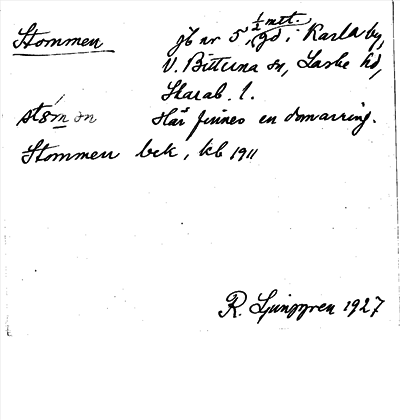 Stommen jb nr 5, ½ mtl. gd i Karlaby,
V. Bitterna sn, Laske hd,
Skarab. l.
støm̄ən Här finnes en domarring.
Stommen bek, kb 1911
R. Ljunggren 1927